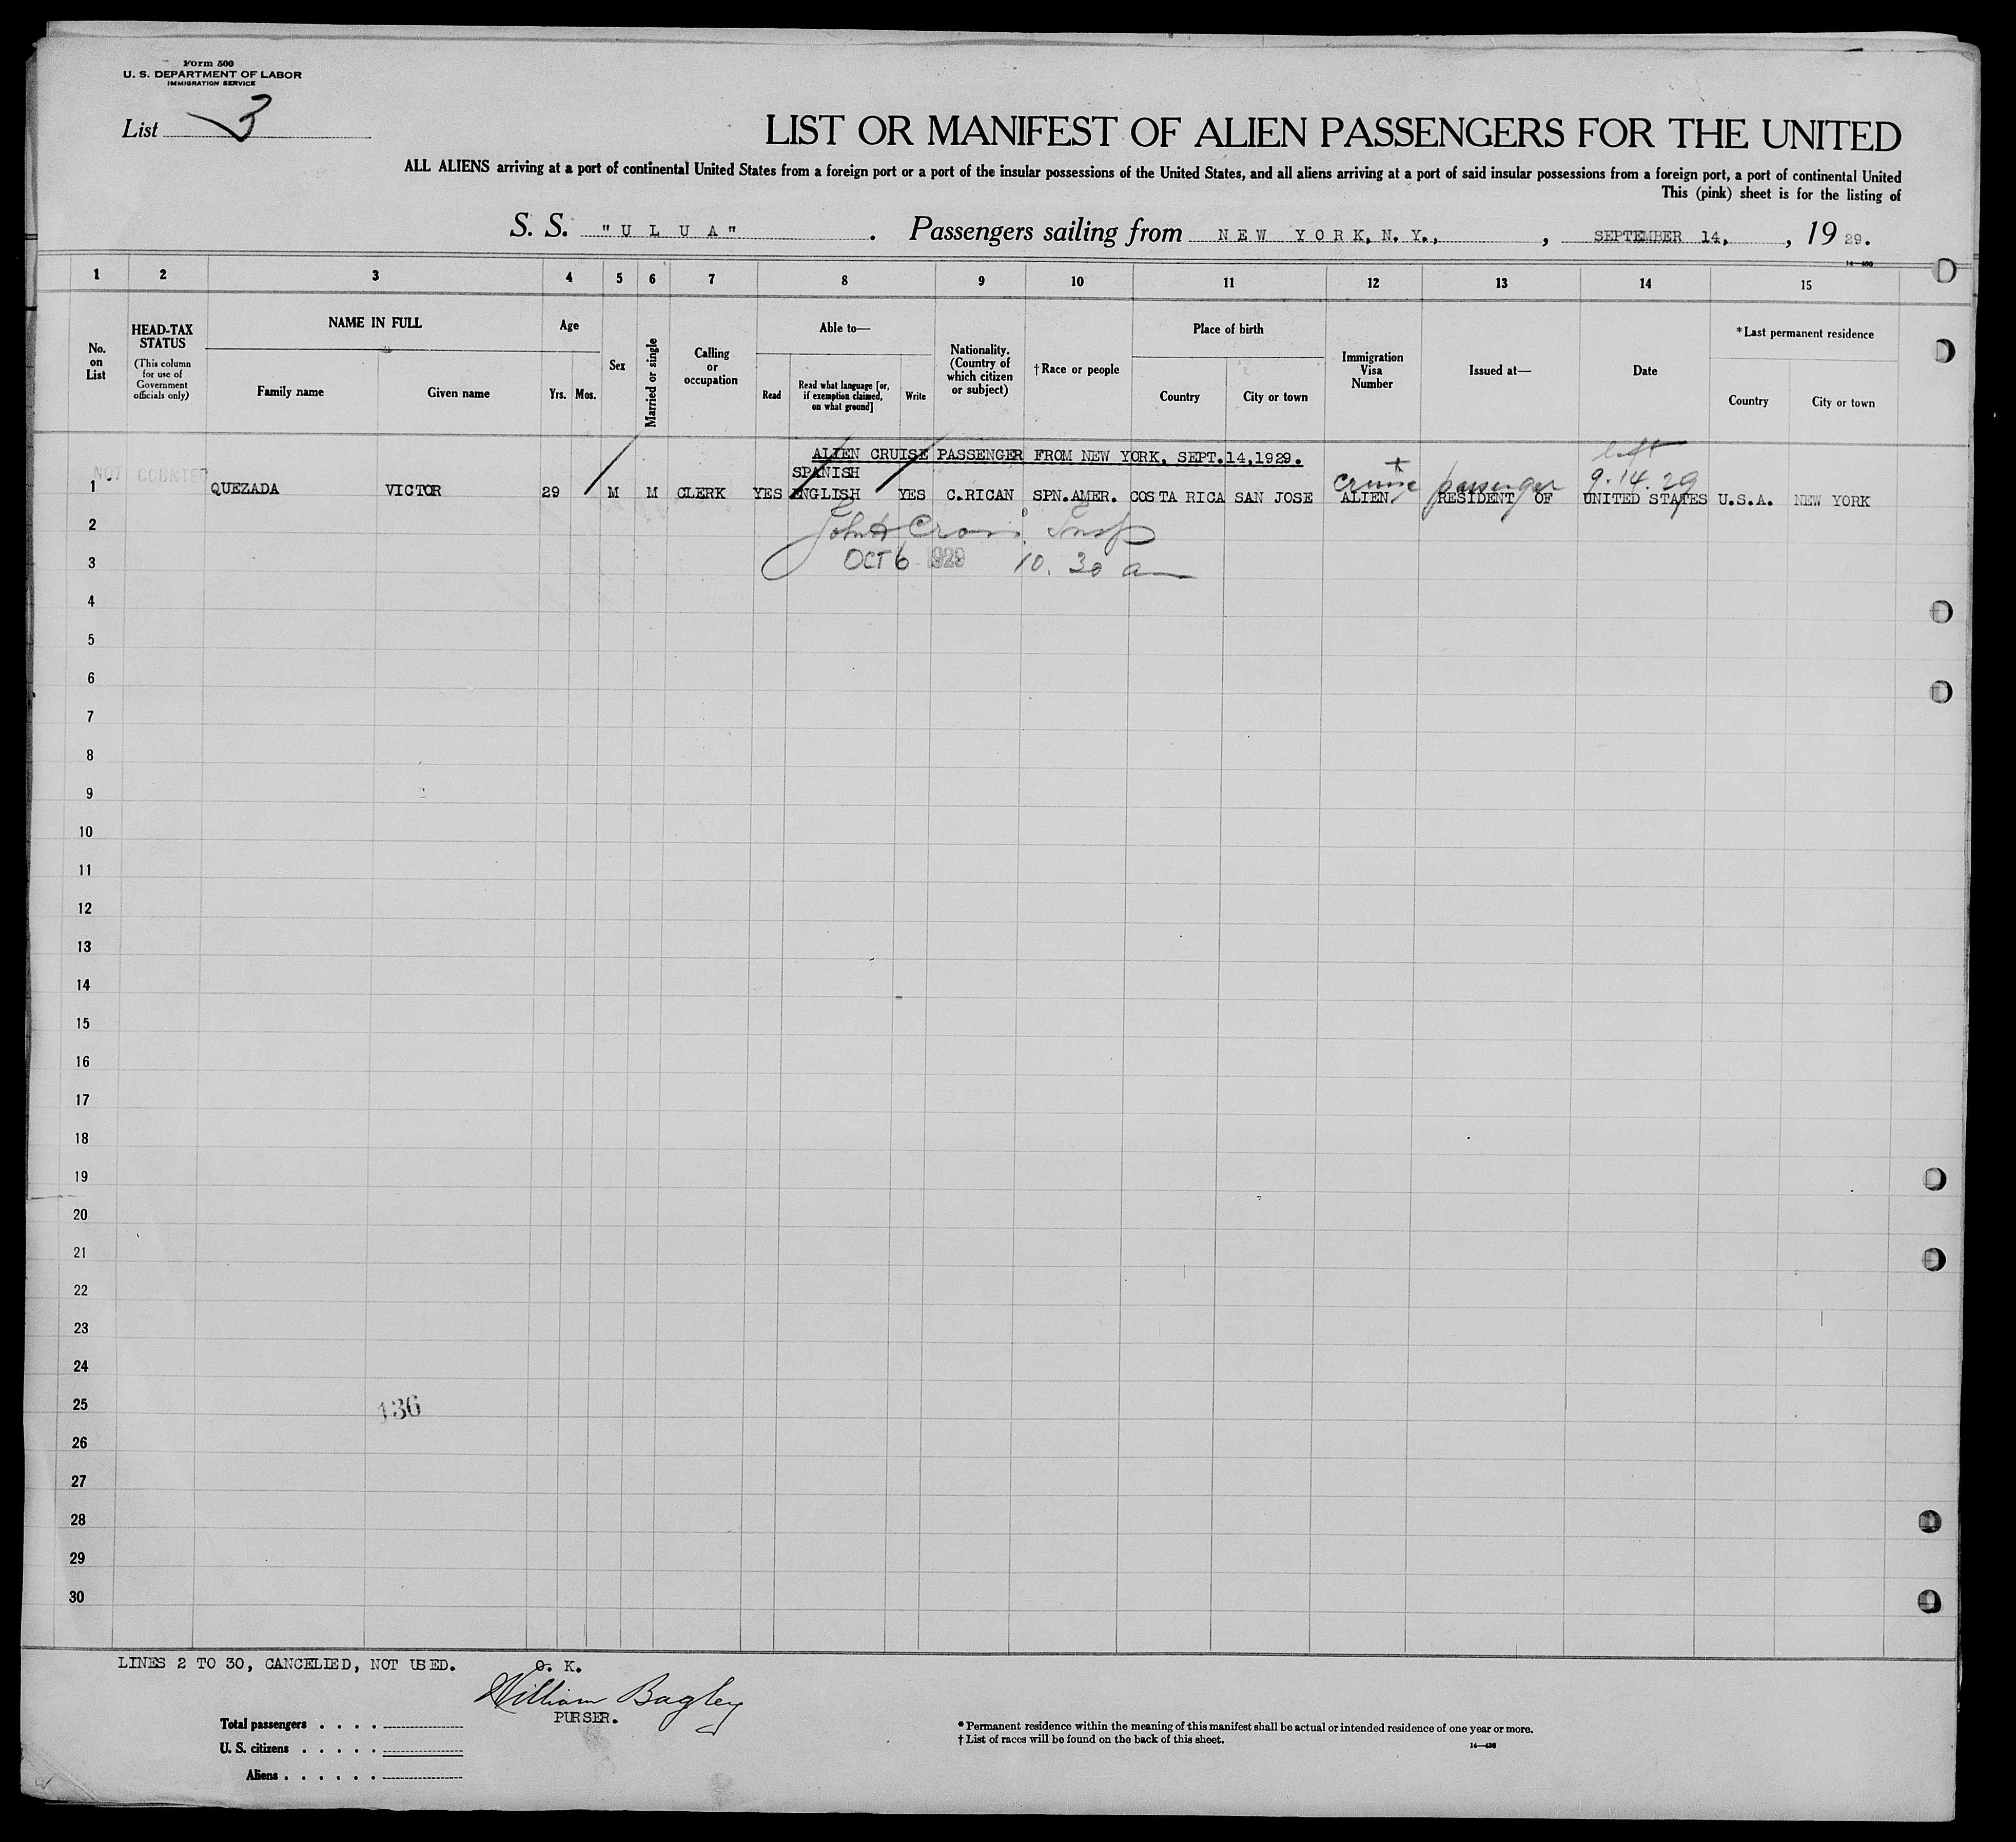 Form 500
U. S. DEPARTMENT OF LABOR
IMMIGRATION SERVICE
List 3
LIST OR MANIFEST OF ALIEN PASSENGERS FOR THE UNITED
ALL ALIENS arriving at a port of continental United States from a foreign port or a port of the insular possessions of the United States, and all aliens arriving at a port of said insular possessions from a foreign port, a port of continental United
This (pink) sheet is for the listing of
S. S. "ULUA". Passengers sailing from NEW YORK, N. Y., , SEPTEMBER 14, , 19 29.
14—430
1 2 3 4 5 6 7 8 9 10 11 12 13 14 15
No. on List
HEAD-TAX STATUS
(This column for use of Government officials only)
NAME IN FULL
Family name Given name
Age
Yrs. Mos.
Sex
Married or single
Calling or occupation
Able to—
Read
Read what language [or, if exemption claimed, on what ground]
Write
Nationality. (Country of which citizen or subject)
†Race or people
Place of birth
Country City or town
Immigration Visa Number
Issued at—
Date
*Last permanent residence
Country City or town
ALIEN CRUISE PASSENGER FROM NEW YORK, SEPT.14,1929.
left
NOT COUNTED
SPANISH
cruise passenger 9.14.29
1 QUEZADA VICTOR 29 M M CLERK YES ENGLISH YES C.RICAN SPN.AMER. COSTA RICA SAN JOSE ALIEN RESIDENT OF UNITED STATES U.S.A. NEW YORK
2 John Insp
3 OCT 6 1929 10.30 a
4
5
6
7
8
9
10
11
12
13
14
15
16
17
18
19
20
21
22
23
24
25 136
26
27
28
29
30
LINES 2 TO 30, CANCELIED, NOT USED. O. K.
William Bagley
PURSER.
Total passengers . . . .
U. S. citizens . . . . .
Aliens . . . . . .
* Permanent residence within the meaning of this manifest shall be actual or intended residence of one year or more.
† List of races will be found on the back of this sheet.
14—430